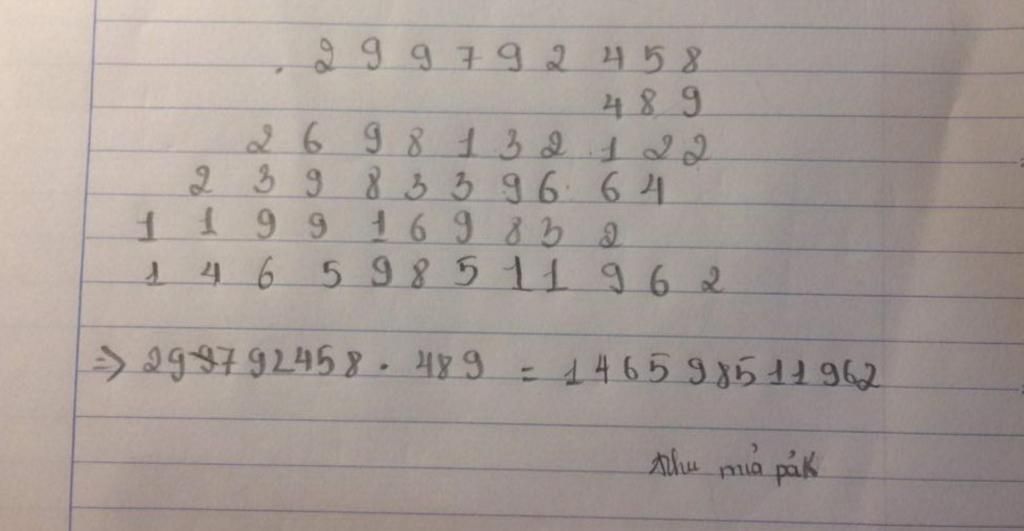 . 299792458
489
2698132122
2398339664
1199169832
146598511962
=> 299792458 . 489 = 146598511962
Như miả pák